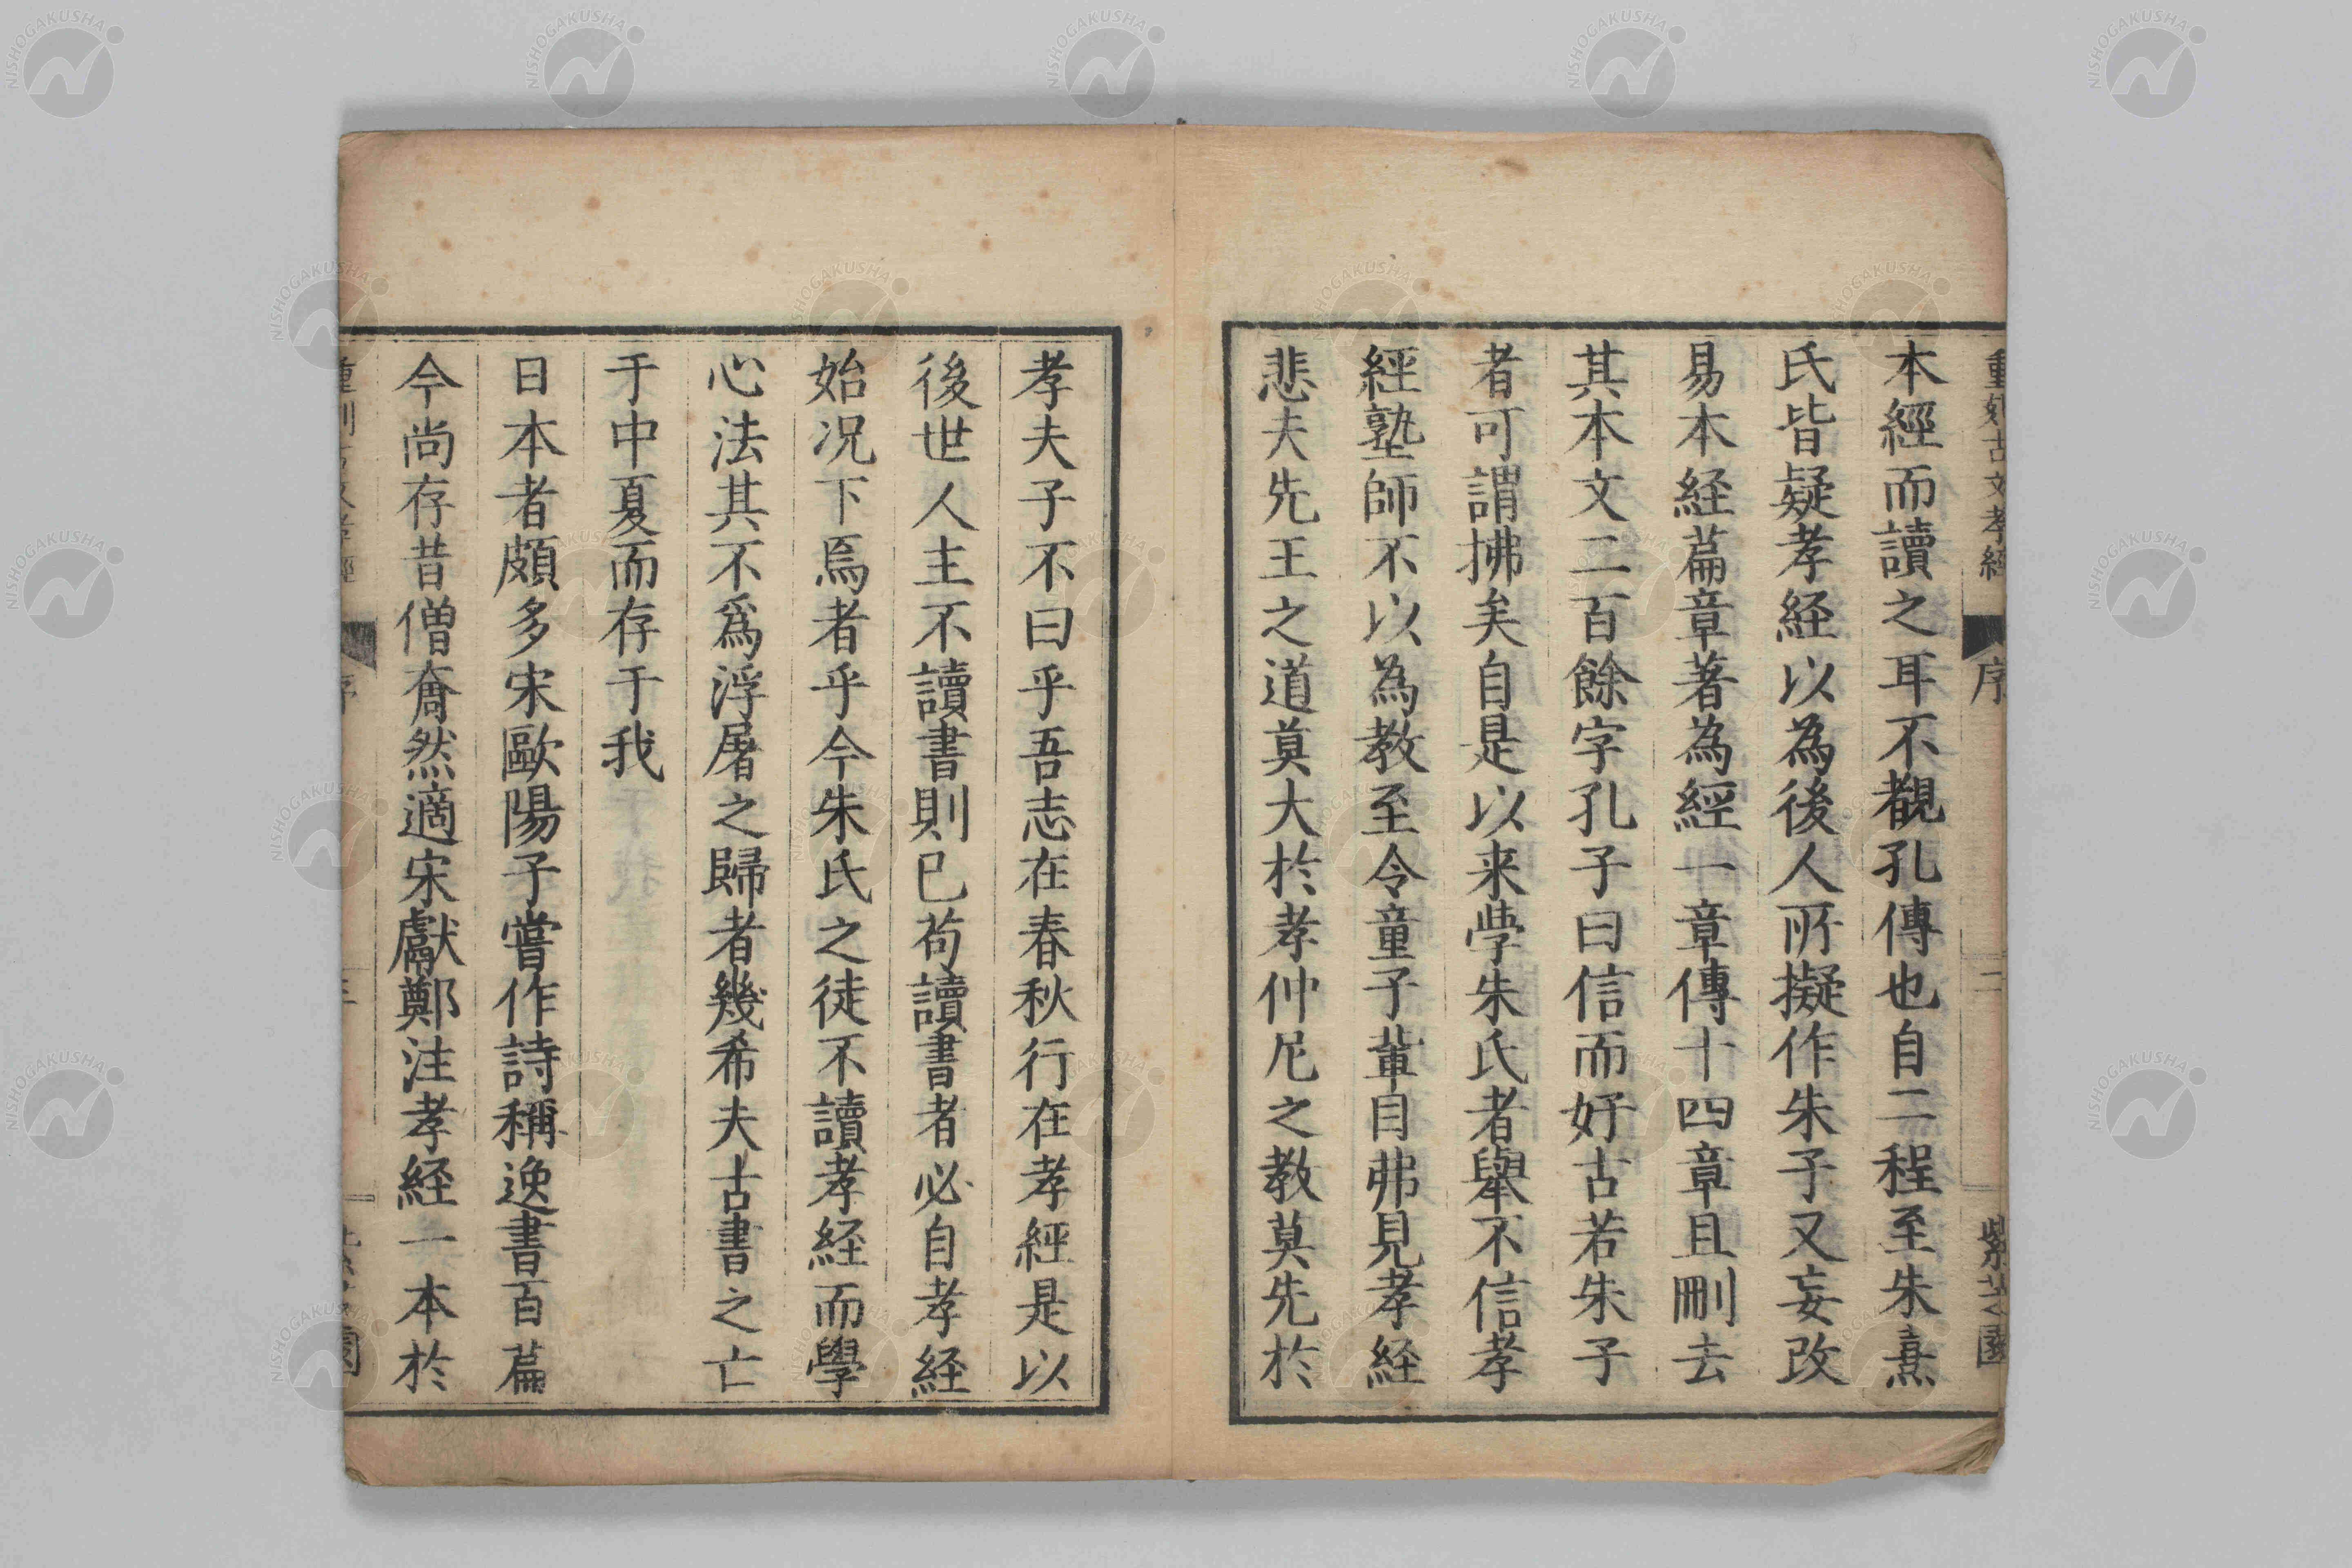 重刻古文孝經 序 二 紫芝園
本經而讀之耳不覩孔傳也自二程至朱熹
氏皆疑孝経以為後人所擬作朱子又妄改
易本経篇章著為經一章傳十四章且刪去
其本文二百餘字孔子曰信而好古若朱子
者可謂拂矣自是以来學朱氏者舉不信孝
經塾師不以為教至令童子軰目弗見孝経
悲夫先王之道莫大於孝仲尼之教莫先於
孝夫子不曰乎吾志在春秋行在孝經是以
後世人主不讀書則已苟讀書者必自孝経
始况下焉者乎今朱氏之徒不讀孝経而學
心法其不爲浮屠之歸者幾希夫古書之亡
于中夏而存于我
日本者頗多宋歐陽子嘗作詩稱逸書百篇
今尚存昔僧奝然適宋獻鄭注孝経一本於
NISHOGAKUSHA